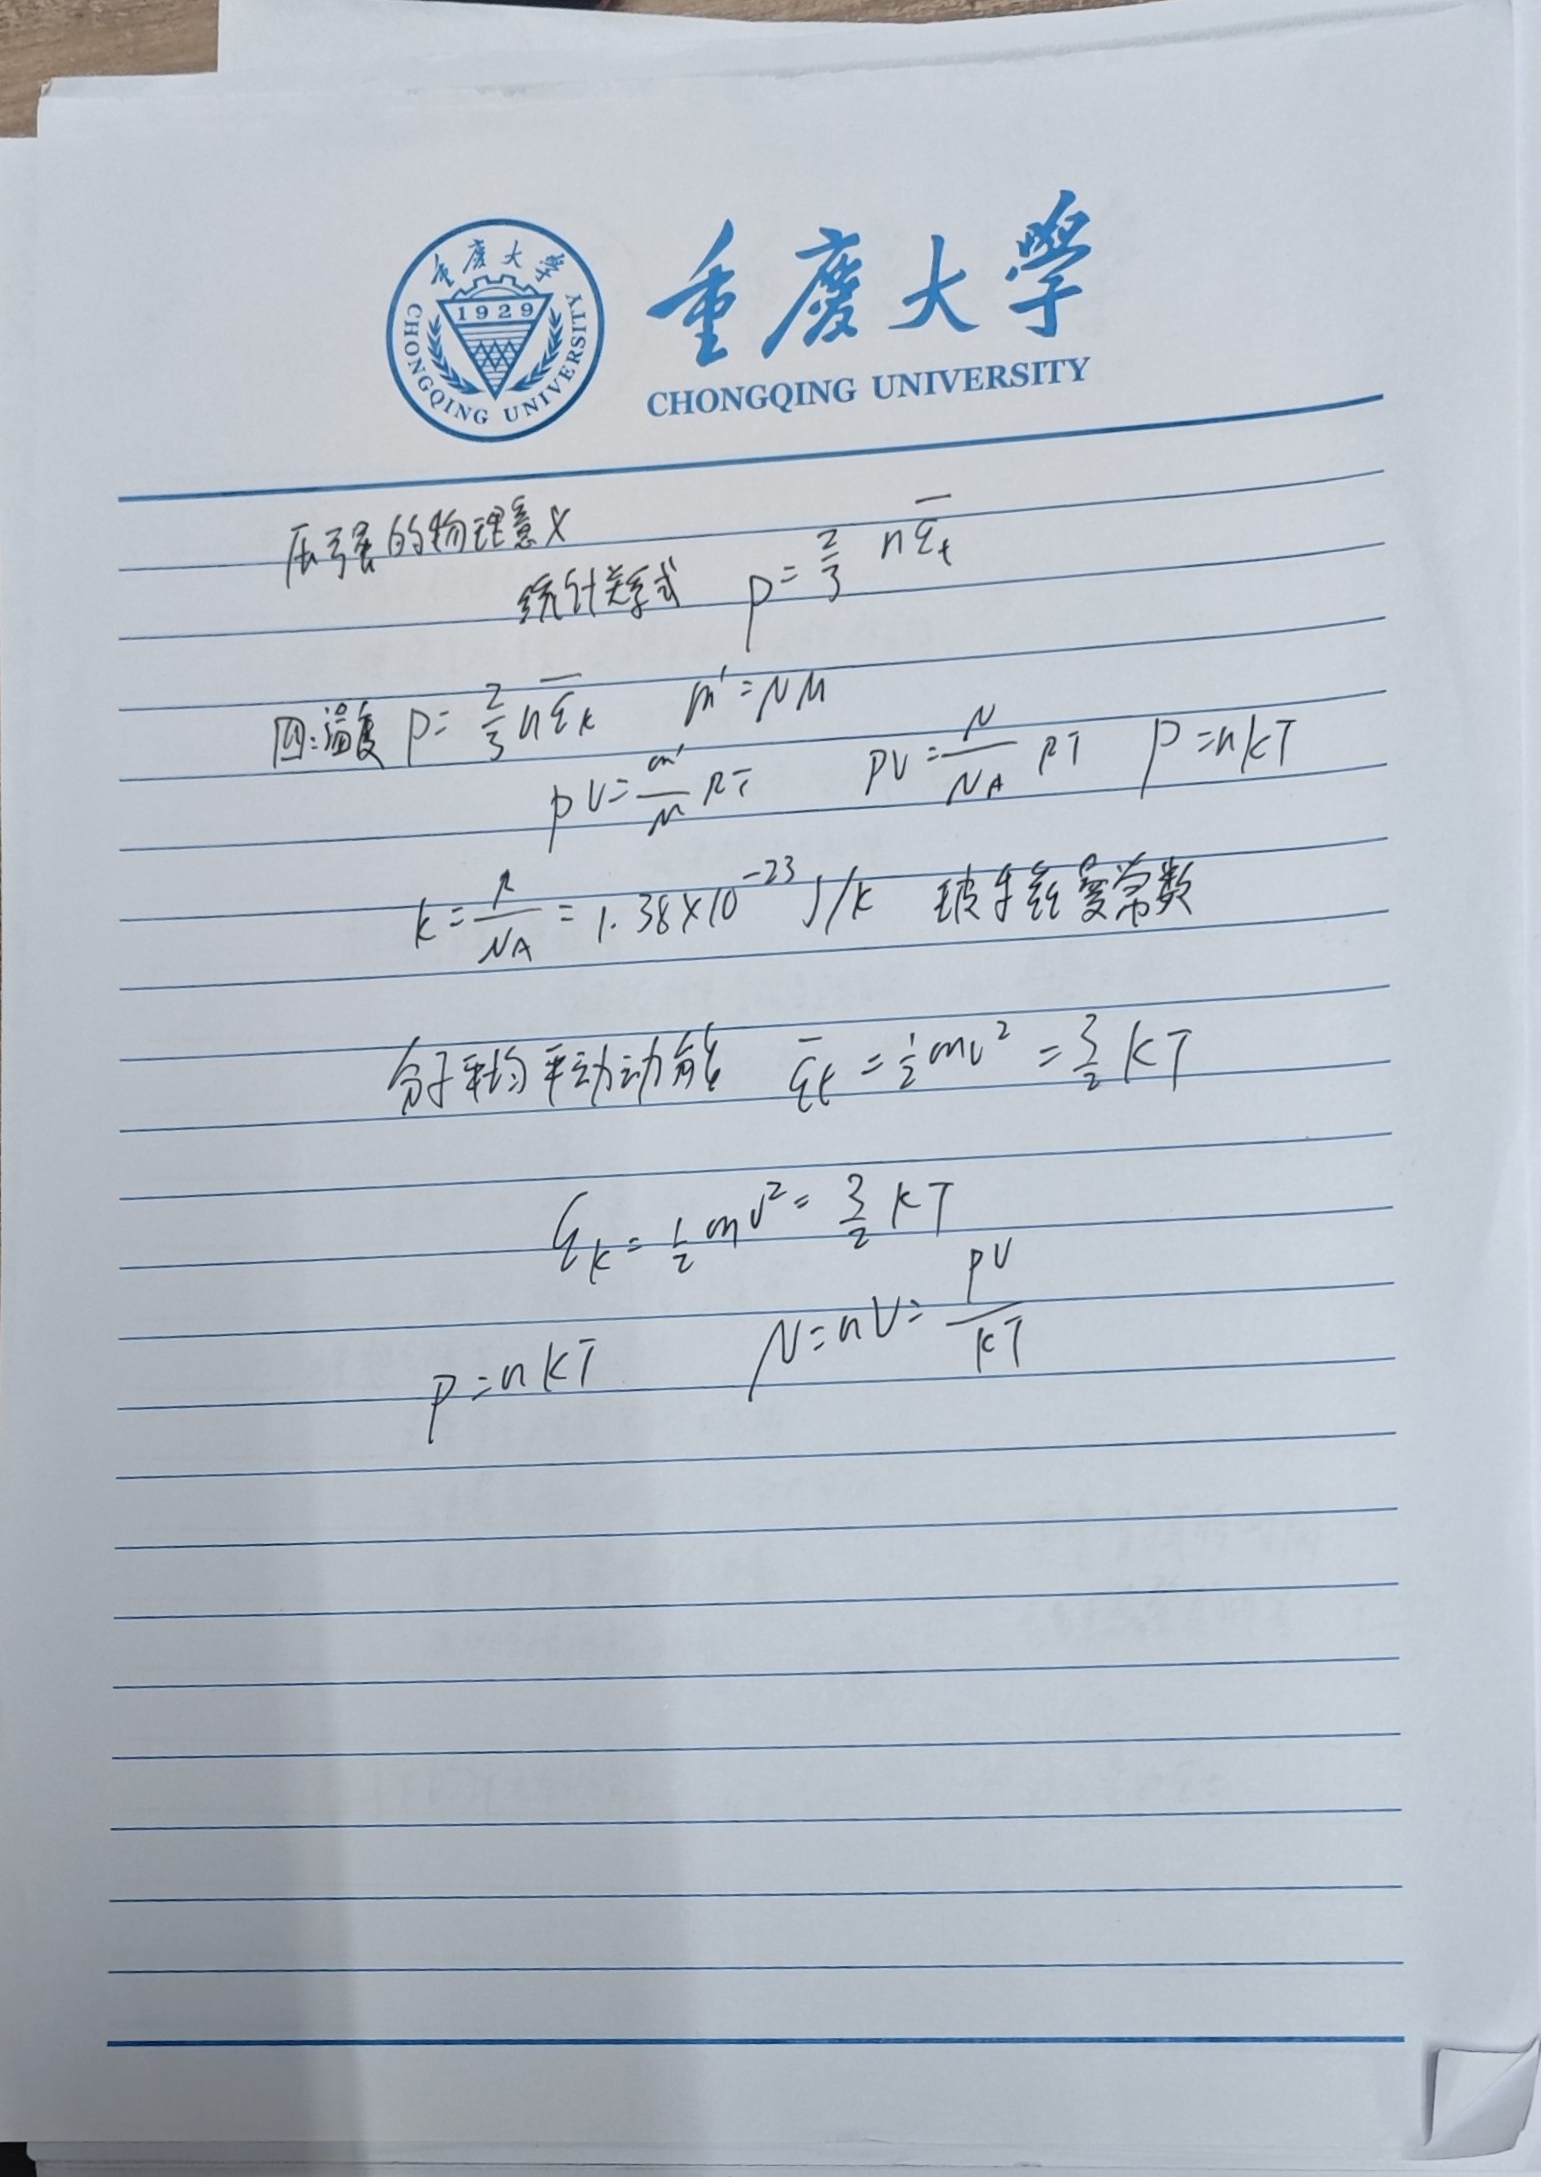 重庆大学
CHONGQING UNIVERSITY
1929
重慶大學
CHONGQING UNIVERSITY
压强的物理意义
统计关系式 p = 2/3 n ε̄ₜ
四:温度 p = 2/3 n ε̄ₖ m' = NM
pV = m'/M RT PV = N/NA RT P = nkT
k = R/NA = 1.38×10⁻²³ J/K 玻尔兹曼常数
分子平均平动动能 ε̄ₖ = 1/2 mv² = 3/2 kT
εₖ = 1/2 mv² = 3/2 kT
P = nkT N = nV = pV/kT